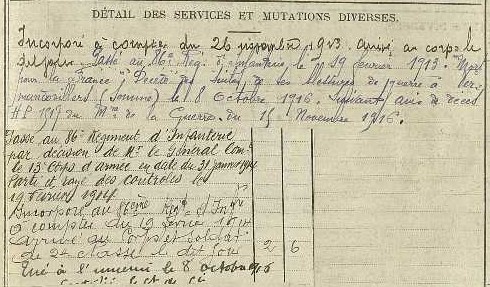 DÉTAIL DES SERVICES ET MUTATIONS DIVERSES.
Incorporé à compter du 26 novembre 1913. Arrivé au corps le
Passé au 86e Rég. d'infanterie, le 19 février 1913. "Mort
pour la France" Décédé des suites de ses blessures de guerre à Vers
mandovillers (Somme) le 8 Octobre 1916. Suivant avis de décès
1517 du Me de la Guerre du 15 Novembre 1916.
Passé au 86e Régiment d'Infanterie
par décision de Mr le Général Comt
le 13e Corps d'armée en date du 31 janvier 1914
Parti et rayé des contrôles le
19 février 1914
Incorporé au 86eme Régt d'Infrie
à compter du 19 Février 1914
arrivé au Corps et soldat
de 2e classe le dit jour 2 6
Tué à l'ennemi le 8 octobre 1916